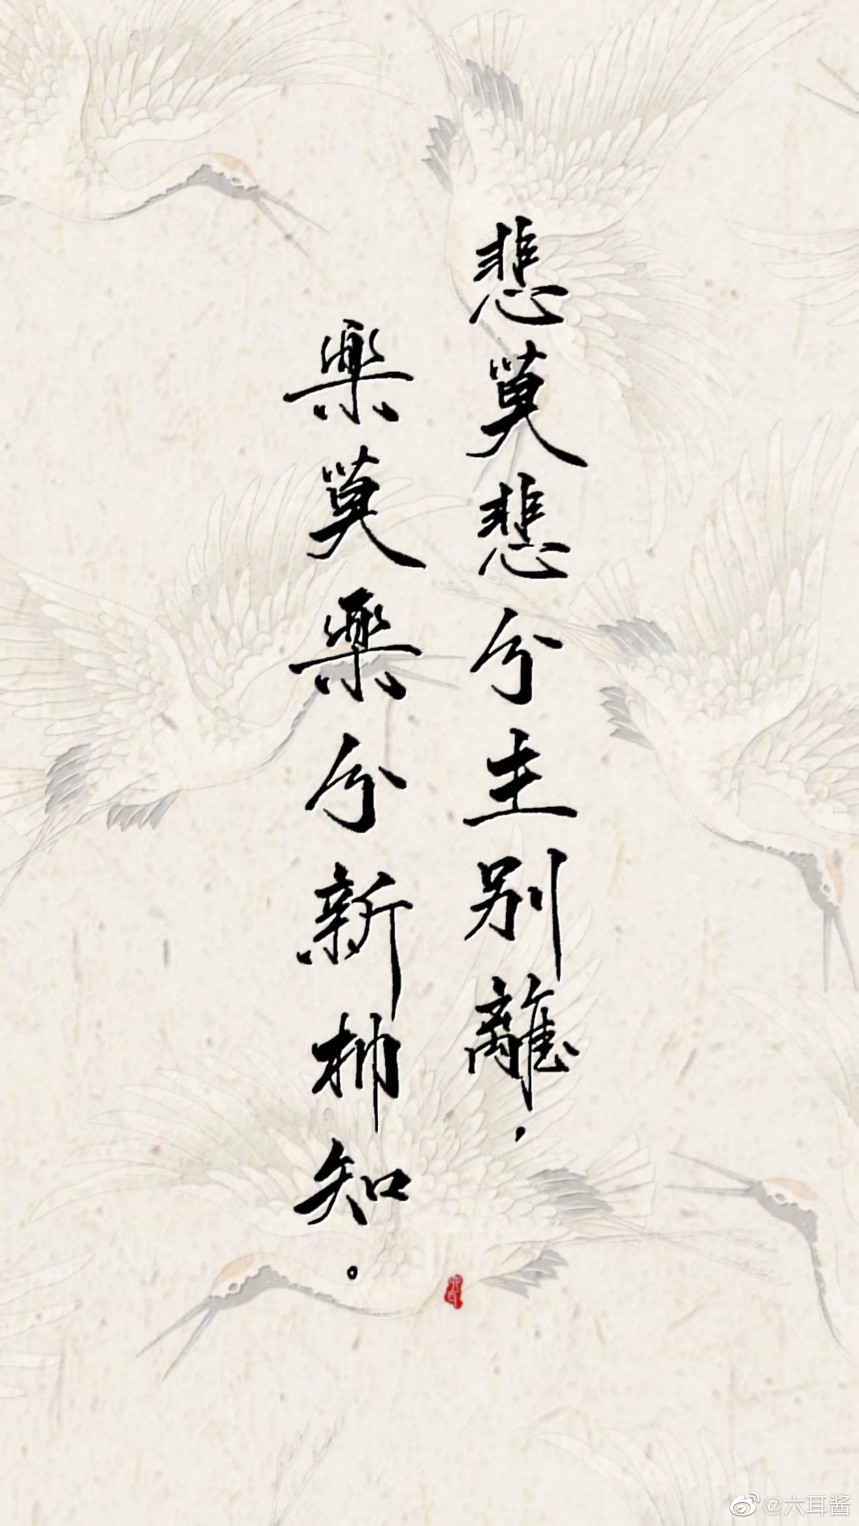 悲莫悲兮生别離，
樂莫樂兮新相知。
@六耳酱